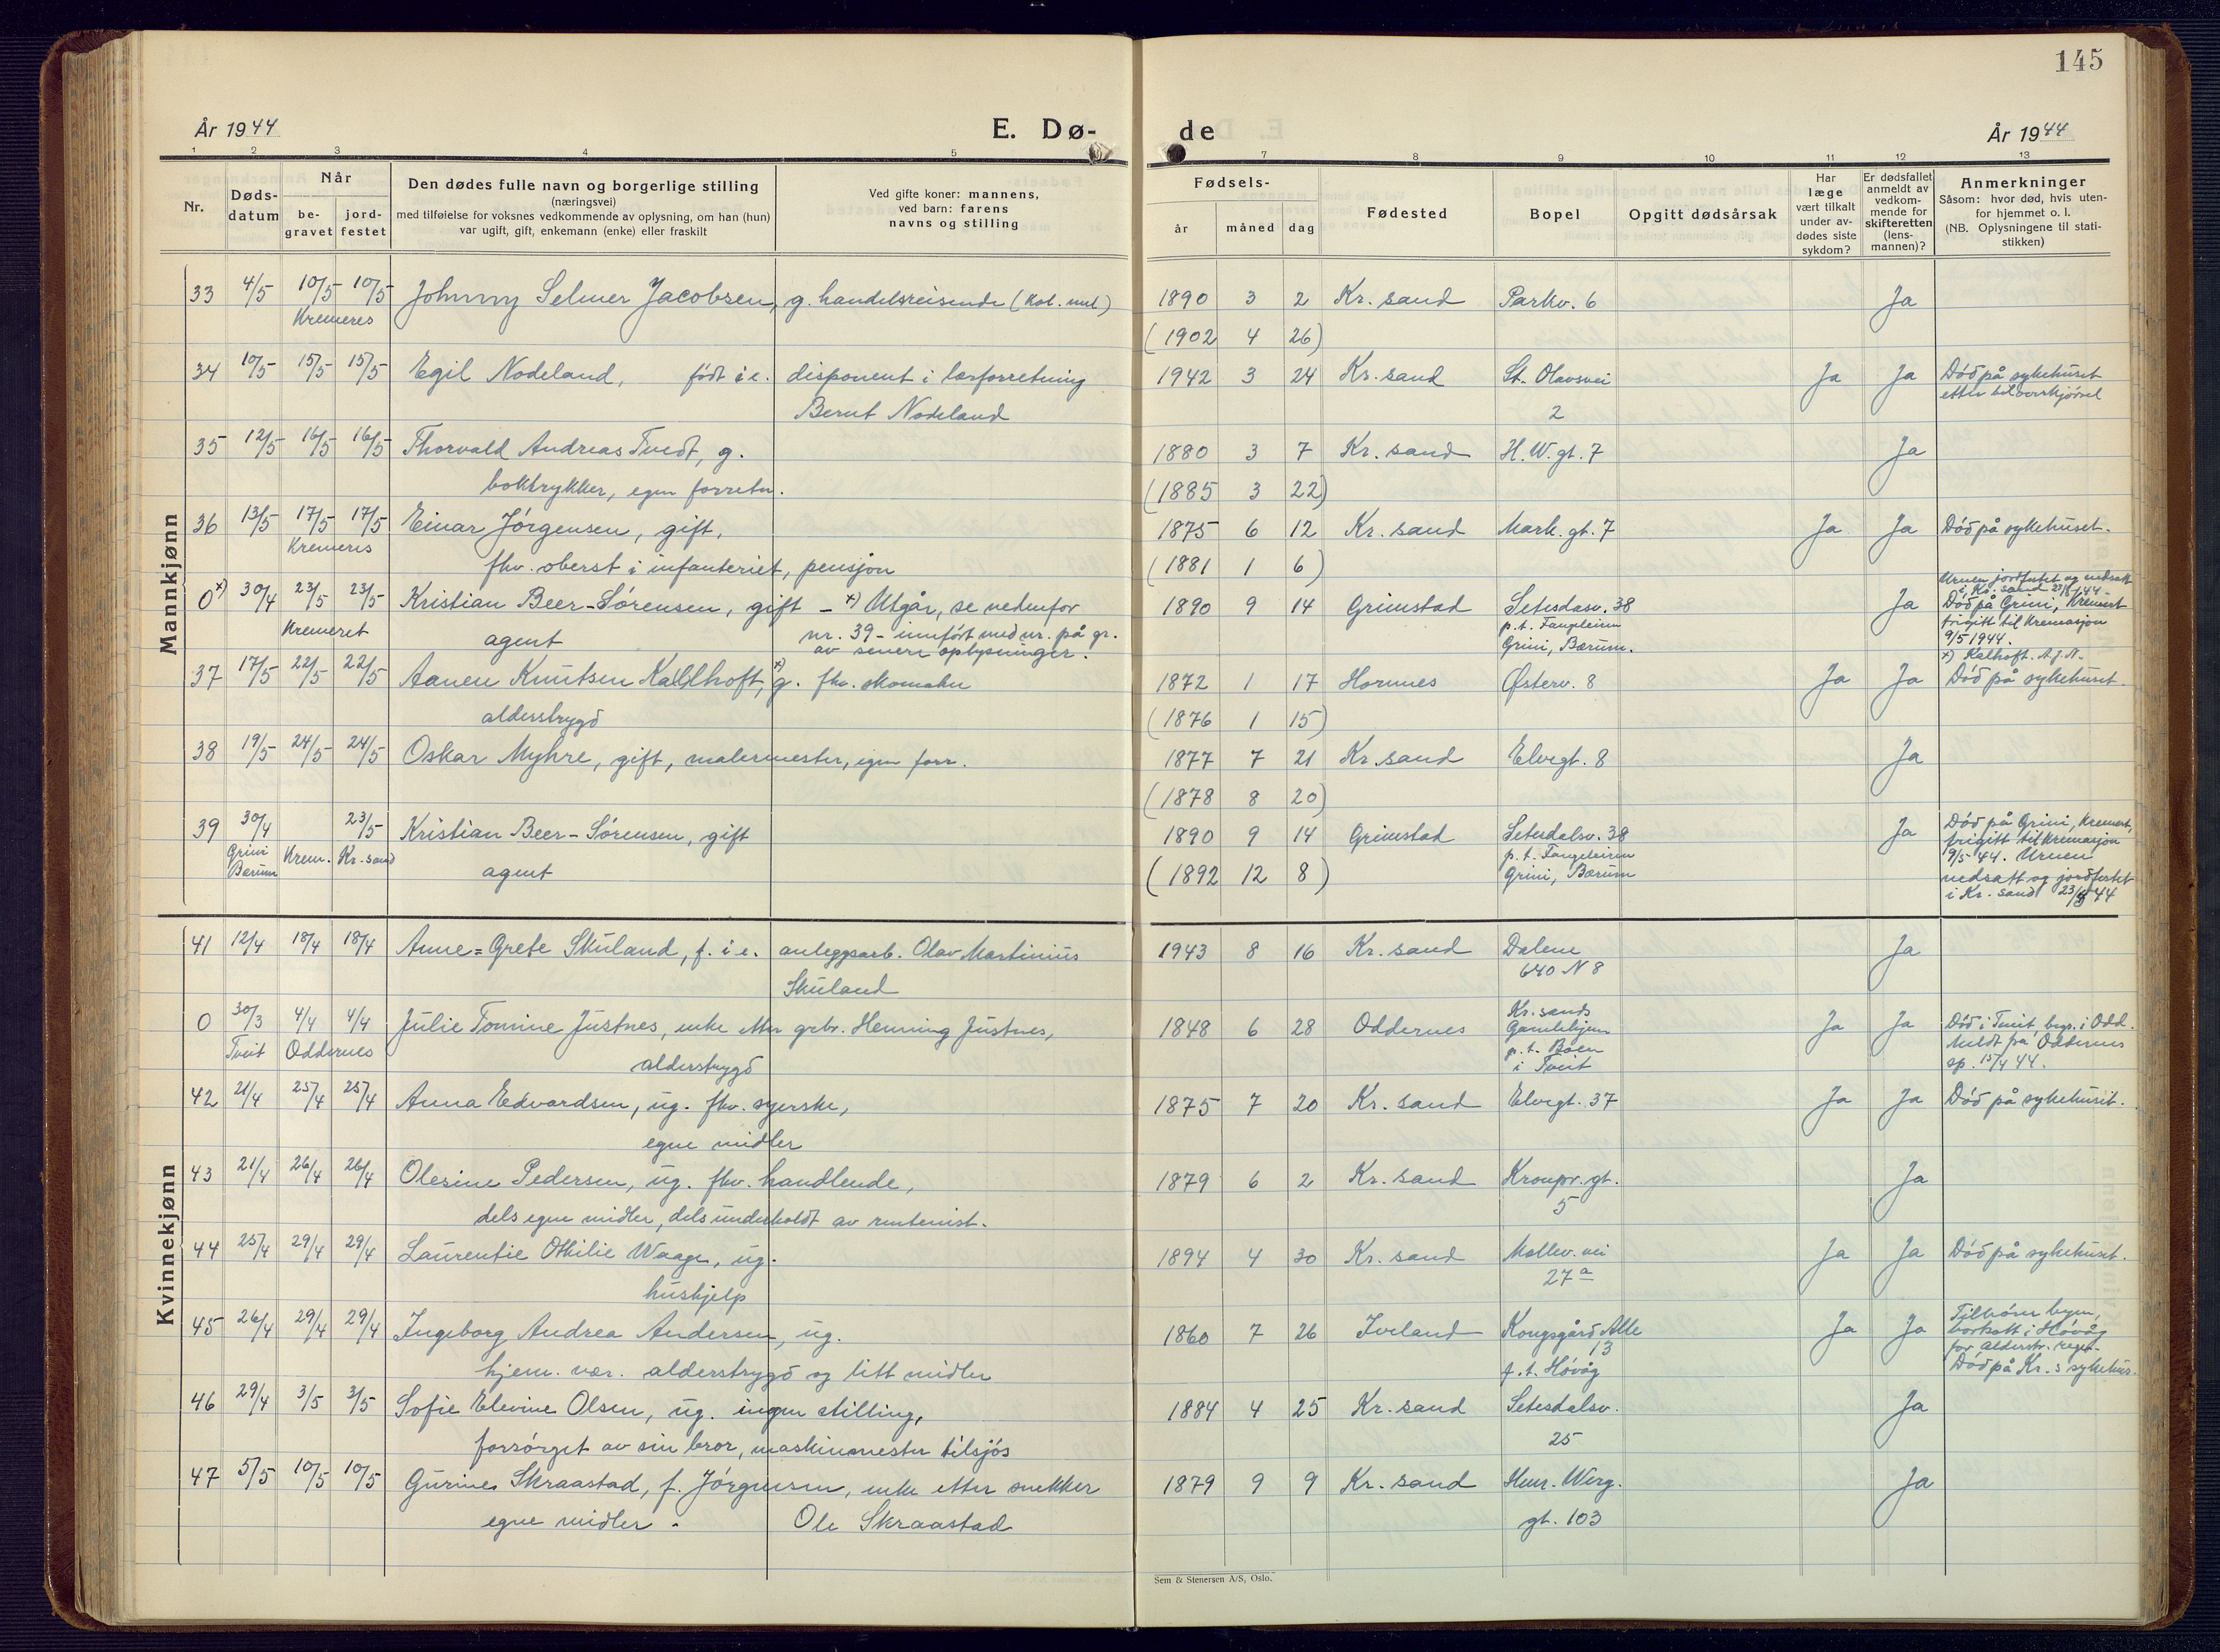 145
År 1944 E. Dø- de År 1944
1 2 3 4 5 7 8 9 10 11 12 13
Nr.
Døds-
datum
Når
be-
gravet
jord-
festet
Den dødes fulle navn og borgerlige stilling
(næringsvei)
med tilføielse for voksnes vedkommende av oplysning, om han (hun)
var ugift, gift, enkemann (enke) eller fraskilt
Ved gifte koner: mannens,
ved barn: farens
navns og stilling
Fødsels-
år måned dag
Fødested
Bopel
Opgitt dødsårsak
Har
læge
vært tilkalt
under av-
dødes siste
sykdom?
Er dødsfallet
anmeldt av
vedkom-
mende for
skifteretten
(lens-
mannen)?
Anmerkninger
Såsom: hvor død, hvis uten-
for hjemmet o. l.
(NB. Oplysningene til stati-
stikken)
Mannkjønn
33 4/5 10/5 10/5 Johnny Selmer Jacobsen, g. handelsreisende 1890 3 2 Kr. sand Parkv. 6 Ja
Kremeres (1902 4 26)
34 10/5 15/5 15/5 Egil Nodeland, født i e. disponent i lærforretning 1942 3 24 Kr. sand St. Olavsvei Ja Ja Død på sykehuset
etter biloverkjørsel
Bernt Nodeland 2
35 12/5 16/5 16/5 Thorvald Andreas Tvedt, g. 1880 3 7 Kr. sand H. W. gt. 7 Ja
boktrykker, egen forretn. (1885 3 22)
36 13/5 17/5 17/5 Einar Jørgensen, gift, 1875 6 12 Kr. sand Mark. gt. 7 Ja Ja Død på sykehuset.
Kremeres
fhv. oberst i infanteriet, pensjon (1881 1 6)
0 x) 30/4 23/5 23/5 Kristian Beer-Sørensen, gift - x) Utgår, se nedenfor 1890 9 14 Grimstad Setesdalsv. 38 Ja
Urnen jordfestet og nedsatt
i Kr. sand 23/5 44.
Død på Grini, Kremert
frigitt til Kremasjon
9/5 1944.
Kremeret agent nr. 39 - innført med nr. på gr.
av senere oplysninger.
p. t. Fangeleiren
Grini, Bærum.
x) Kalhoft. A.J.N.
37 17/5 22/5 22/5 Aanen Knutsen Kallhoft, x) g. fhv. skomaker 1872 1 17 Hornnes Østerv. 8 Ja Ja Død på sykehuset.
alderstrygd (1876 1 15)
38 19/5 24/5 24/5 Oskar Myhre, gift, malermester, egen forr. 1877 7 21 Kr. sand Elvegt. 8 Ja
(1878 8 20)
39 30/4 23/5 Kristian Beer-Sørensen, gift 1890 9 14 Grimstad Setesdalsv. 38 Ja
Grini
Bærum
Krem. Kr. sand
agent (1892 12 8)
p. t. Fangeleiren
Grini, Bærum
Død på Grini, Kremert,
frigitt til kremasjon
9/5 44. Urnen
nedsatt og jordfestet
i Kr. sand 23/5 44
Kvinnekjønn
41 12/4 18/4 18/4 Anne=Grete Skuland, f. i e. anleggsarb. Olav Martinius 1943 8 16 Kr. sand Dalene Ja
Skuland 640 N 8
0 30/3 4/4 4/4 Julie Tomine Justnes, enke etter grbr. Henning Justnes, 1848 6 28 Oddernes Kr. sands Ja Ja Død i Tveit, begr. i Odd.
Tveit Oddernes alderstrygd
Gamlehjem
p. t. Boen
i Tveit
Meldt fra Oddernes
sp. 15/4 44.
42 21/4 25/4 25/4 Anna Edvardsen, ug. fhv. syerske, 1875 7 20 Kr. sand Elvegt. 37 Ja Ja Død på sykehuset.
egne midler
43 21/4 26/4 26/4 Olesine Pedersen, ug. fhv. handlende, 1879 6 2 Kr. sand Kronpr. gt. Ja
dels egne midler, dels underholdt av rentenist. 5
44 25/4 29/4 29/4 Laurentie Othilie Waage, ug. 1894 4 30 Kr. sand Møllev. vei Ja Ja Død på sykehuset.
hushjelp 27 a
45 26/4 29/4 29/4 Ingeborg Andrea Andersen, ug. 1860 7 26 Iveland Kongsgård Alle Ja Ja
hjem. vær. alderstrygd og litt midler 13
p. t. Høvåg
Tilhører byen,
bortsatt i Høvåg
for alderstr. regn.
Død på Kr. s sykehus.
46 29/4 3/5 3/5 Sofie Elevine Olsen, ug. ingen stilling, 1884 4 25 Kr. sand Setesdalsv. Ja
forsørget av sin bror, maskinmester tilsjøs 25
47 5/5 10/5 10/5 Gurine Skraastad, f. Jørgensen, enke etter snekker 1879 9 9 Kr. sand Henr. Werg. Ja
egne midler. Ole Skraastad gt. 103
Sem & Stenersen A/S, Oslo.